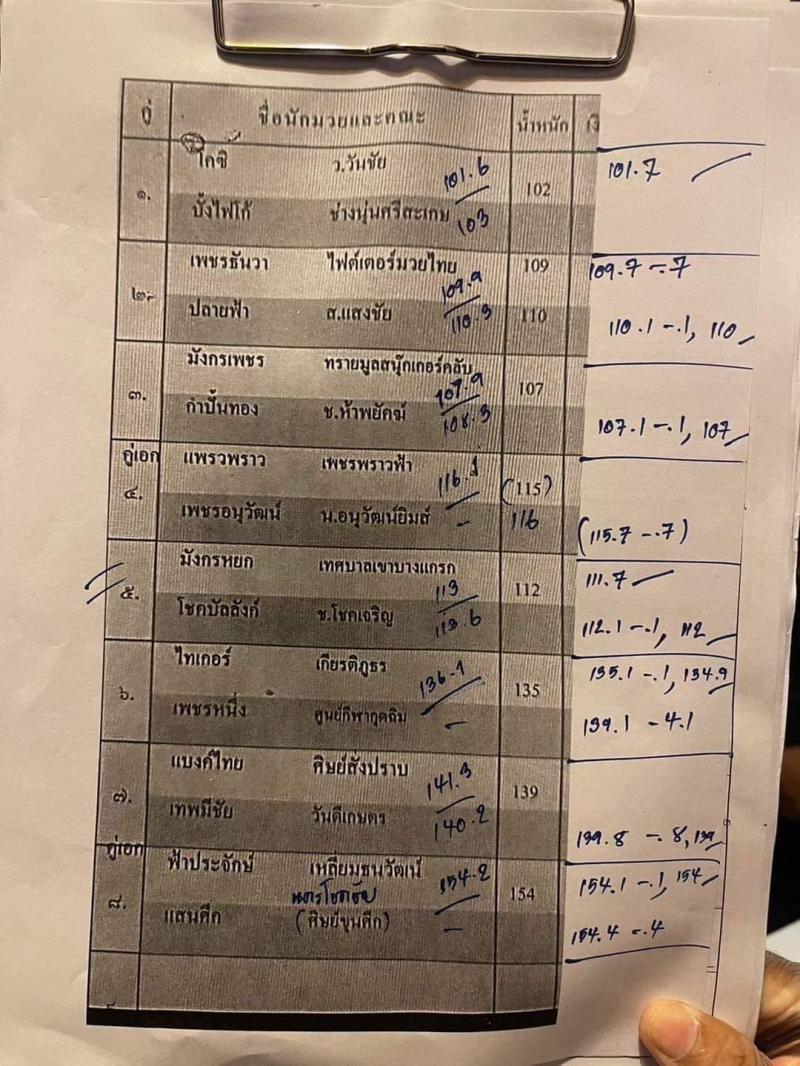 คู่ ชื่อนักมวยและคณะ น้ำหนัก
โกซิ ว.วันชัย 101.6 101.7
๑. 102
บั้งไฟโก้ ช่างนุ่นศรีสะเกษ 103
เพชรธันวา ไฟต์เตอร์มวยไทย 109.9 109 109.7 -.7
๒.
ปลายฟ้า ส.แสงชัย 110.3 110 110.1 -.1, 110
มังกรเพชร ทรายมูลสนุ๊กเกอร์คลับ 107.9
๓. 107
กำปั้นทอง ช.ห้าพยัคฆ์ 108.3 107.1 -.1, 107
คู่เอก แพรวพราว เพชรพราวฟ้า 116.1
๔. (115)
เพชรอนุวัฒน์ น.อนุวัฒน์ยิมส์ - 116 (115.7 -.7)
มังกรหยก เทศบาลเขาบางแกรก 113 111.7
๕. 112
โชคบัลลังก์ ช.โชคเจริญ 113.6 112.1 -.1, 112
ไทเกอร์ เกียรติภูธร 136.1 135.1 -.1, 134.9
๖. 135
เพชรหนึ่ง ศูนย์กีฬากุดฉิม - 139.1 - 4.1
แบงค์ไทย ศิษย์สังปราบ 141.3
๗. 139
เทพมีชัย วันดีเกษตร 140.2 139.8 -.8, 139
คู่เอก ฟ้าประจักษ์ เหลี่ยมธนวัฒน์ 154.2 154.1 -.1, 154
๘. นครโชคชัย 154
แสนศึก (ศิษย์ขุนศึก) - 154.4 -.4